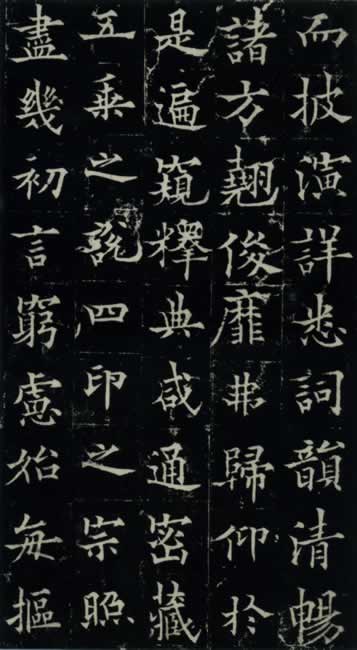 而披演詳悉詞韻清暢
諸方翹俊靡弗歸仰於
是遍窺釋典咸通密藏
五乘之說四印之宗照
盡幾初言窮慮始每摳